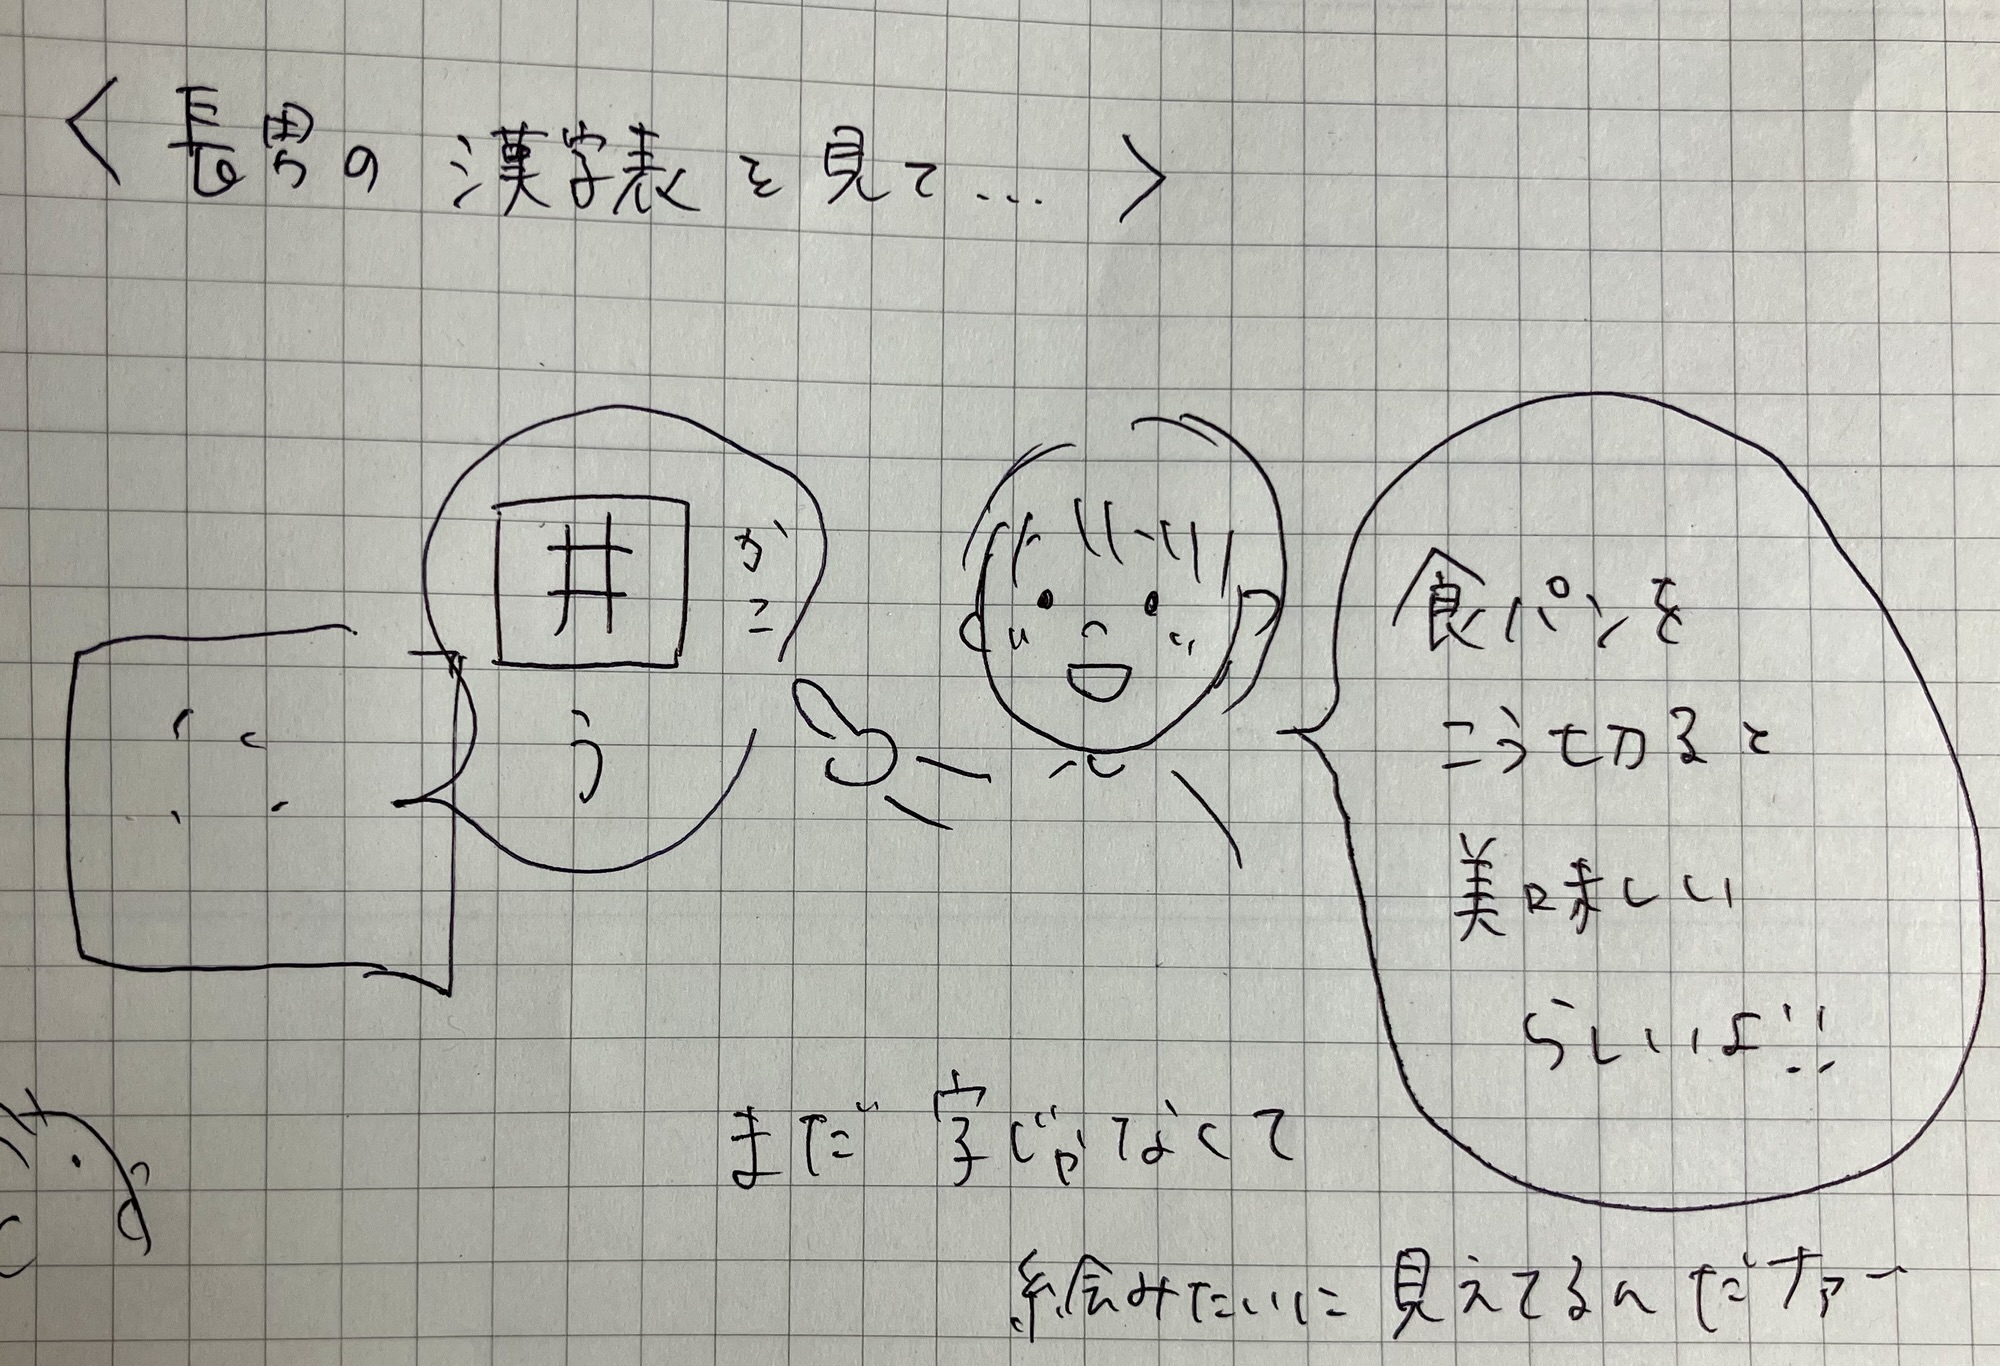 <長男の漢字表を見て...>
囲
かこ
う
食パンを
こうて切ると
美味しい
らしいよ!!
まだ字じゃなくて
絵みたいに見えてるんだナァー